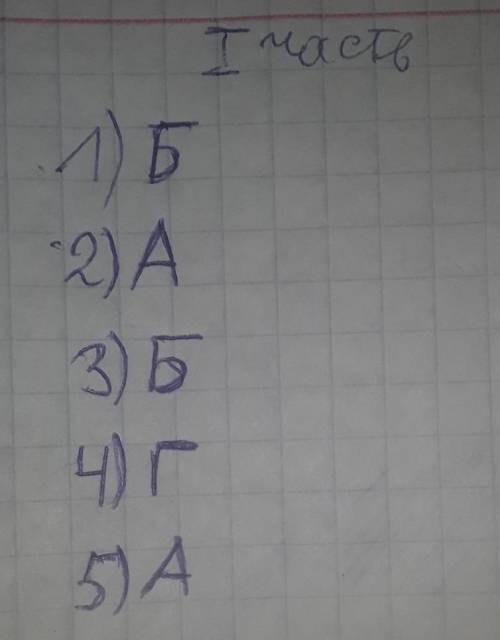 I часть
1) Б
2) А
3) Б
4) Г
5) А